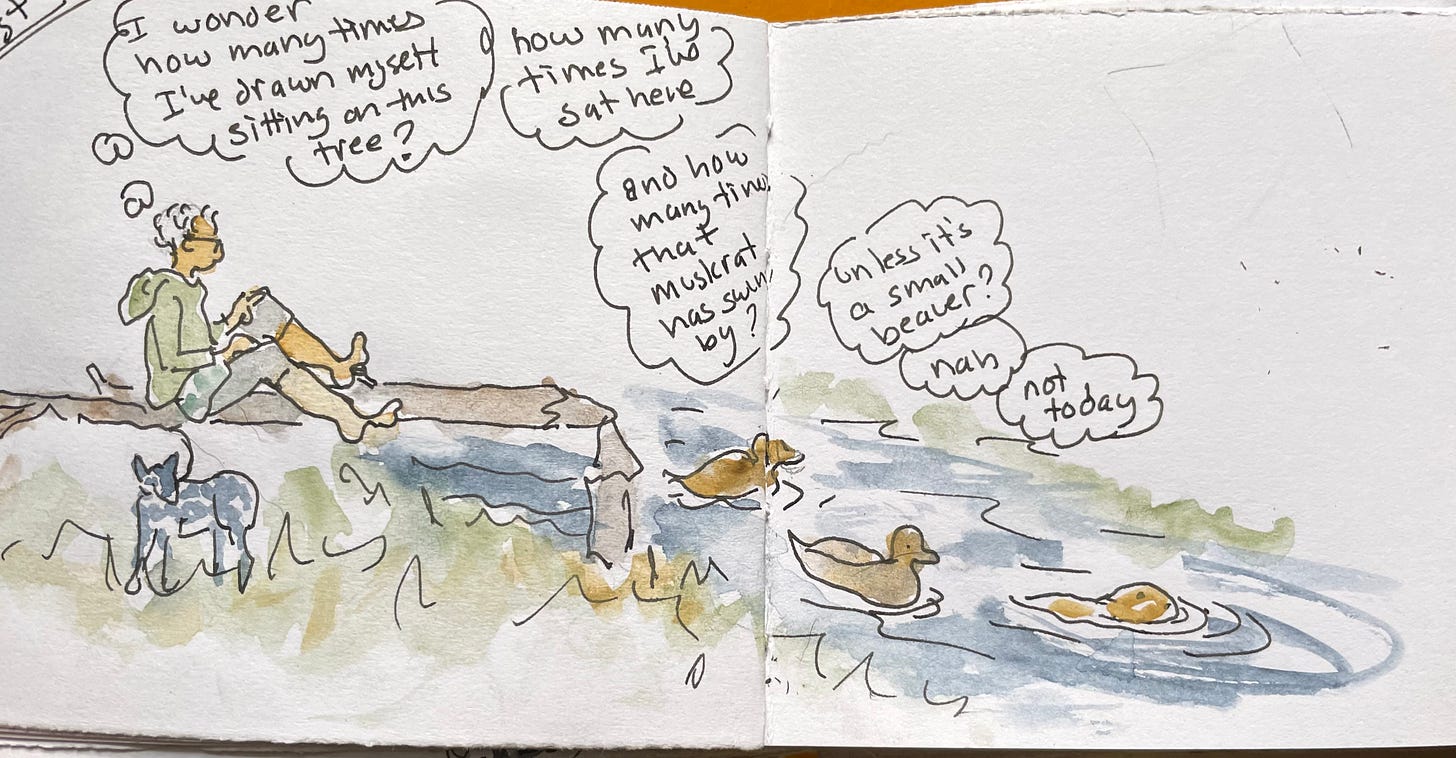 I wonder
how many times
I've drawn myself
sitting on this
tree?
how many
times I've
sat here
and how
many times
that
muskrat
has swum
by?
unless it's
a small
beaver?
nah
not
today